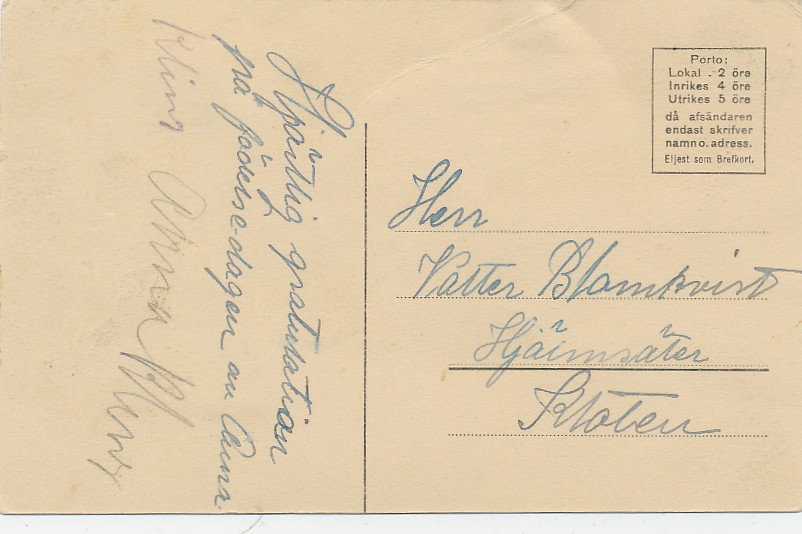 Hjärtlig gratulation
på födelse-dagen av Anna.
Kling
Anna Kling
Porto:
Lokal . 2 öre
Inrikes 4 öre
Utrikes 5 öre
då afsändaren
endast skrifver
namn o. adress.
Eljest som Brefkort.
Herr
Valter Blomkvist
Hjälmsäter
Kloten